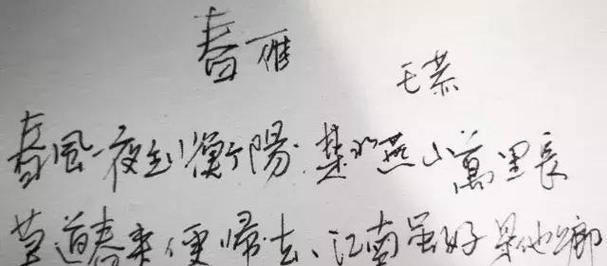 春雁
王恭
春風一夜到衡陽.楚水燕山萬里長
莫道春来便歸去、江南虽好是他鄉